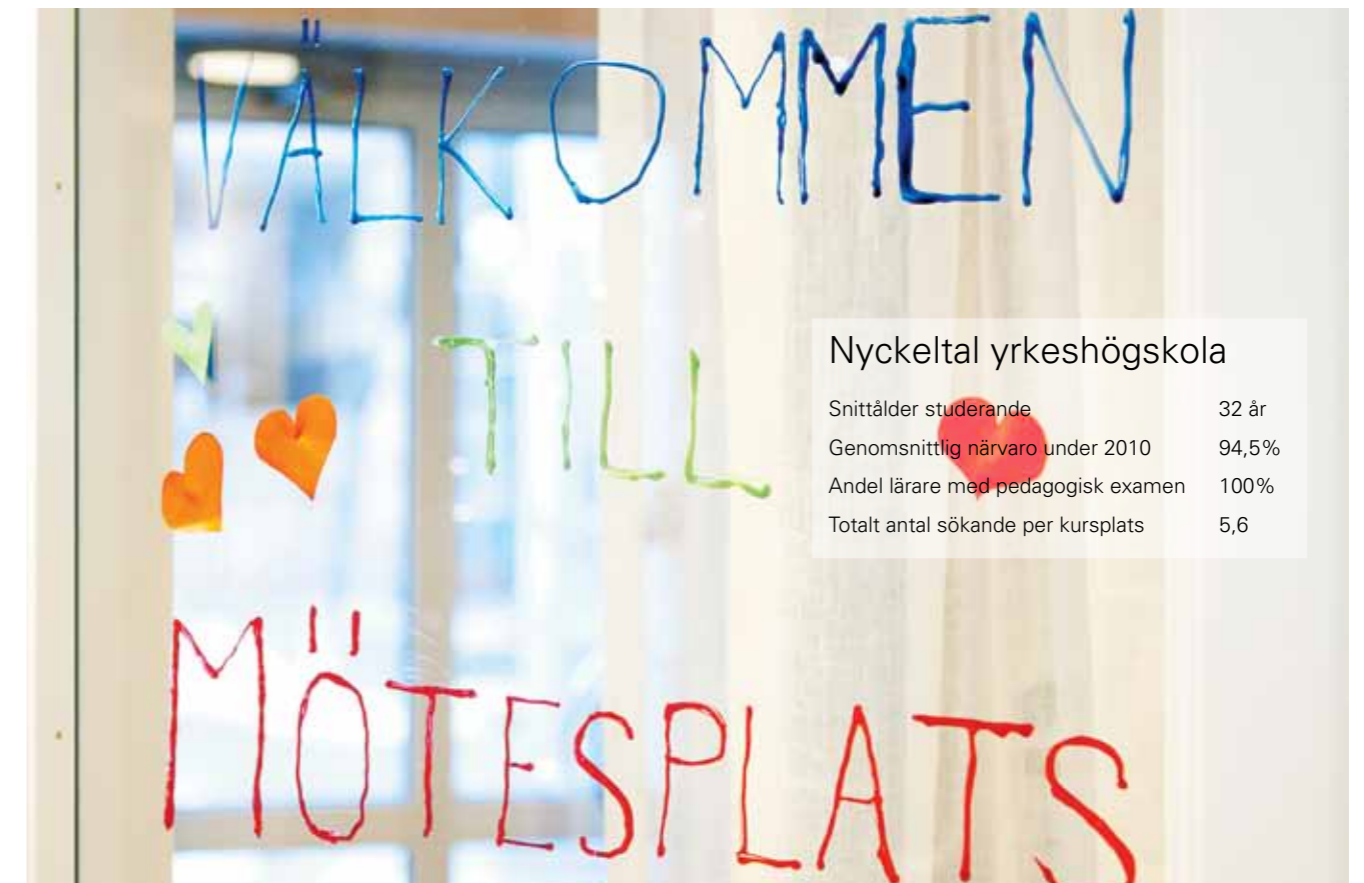 VÄLKOMMEN
TILL
MÖTESPLATS
Nyckeltal yrkeshögskola
Snittålder studerande 32 år
Genomsnittlig närvaro under 2010 94,5%
Andel lärare med pedagogisk examen 100%
Totalt antal sökande per kursplats 5,6